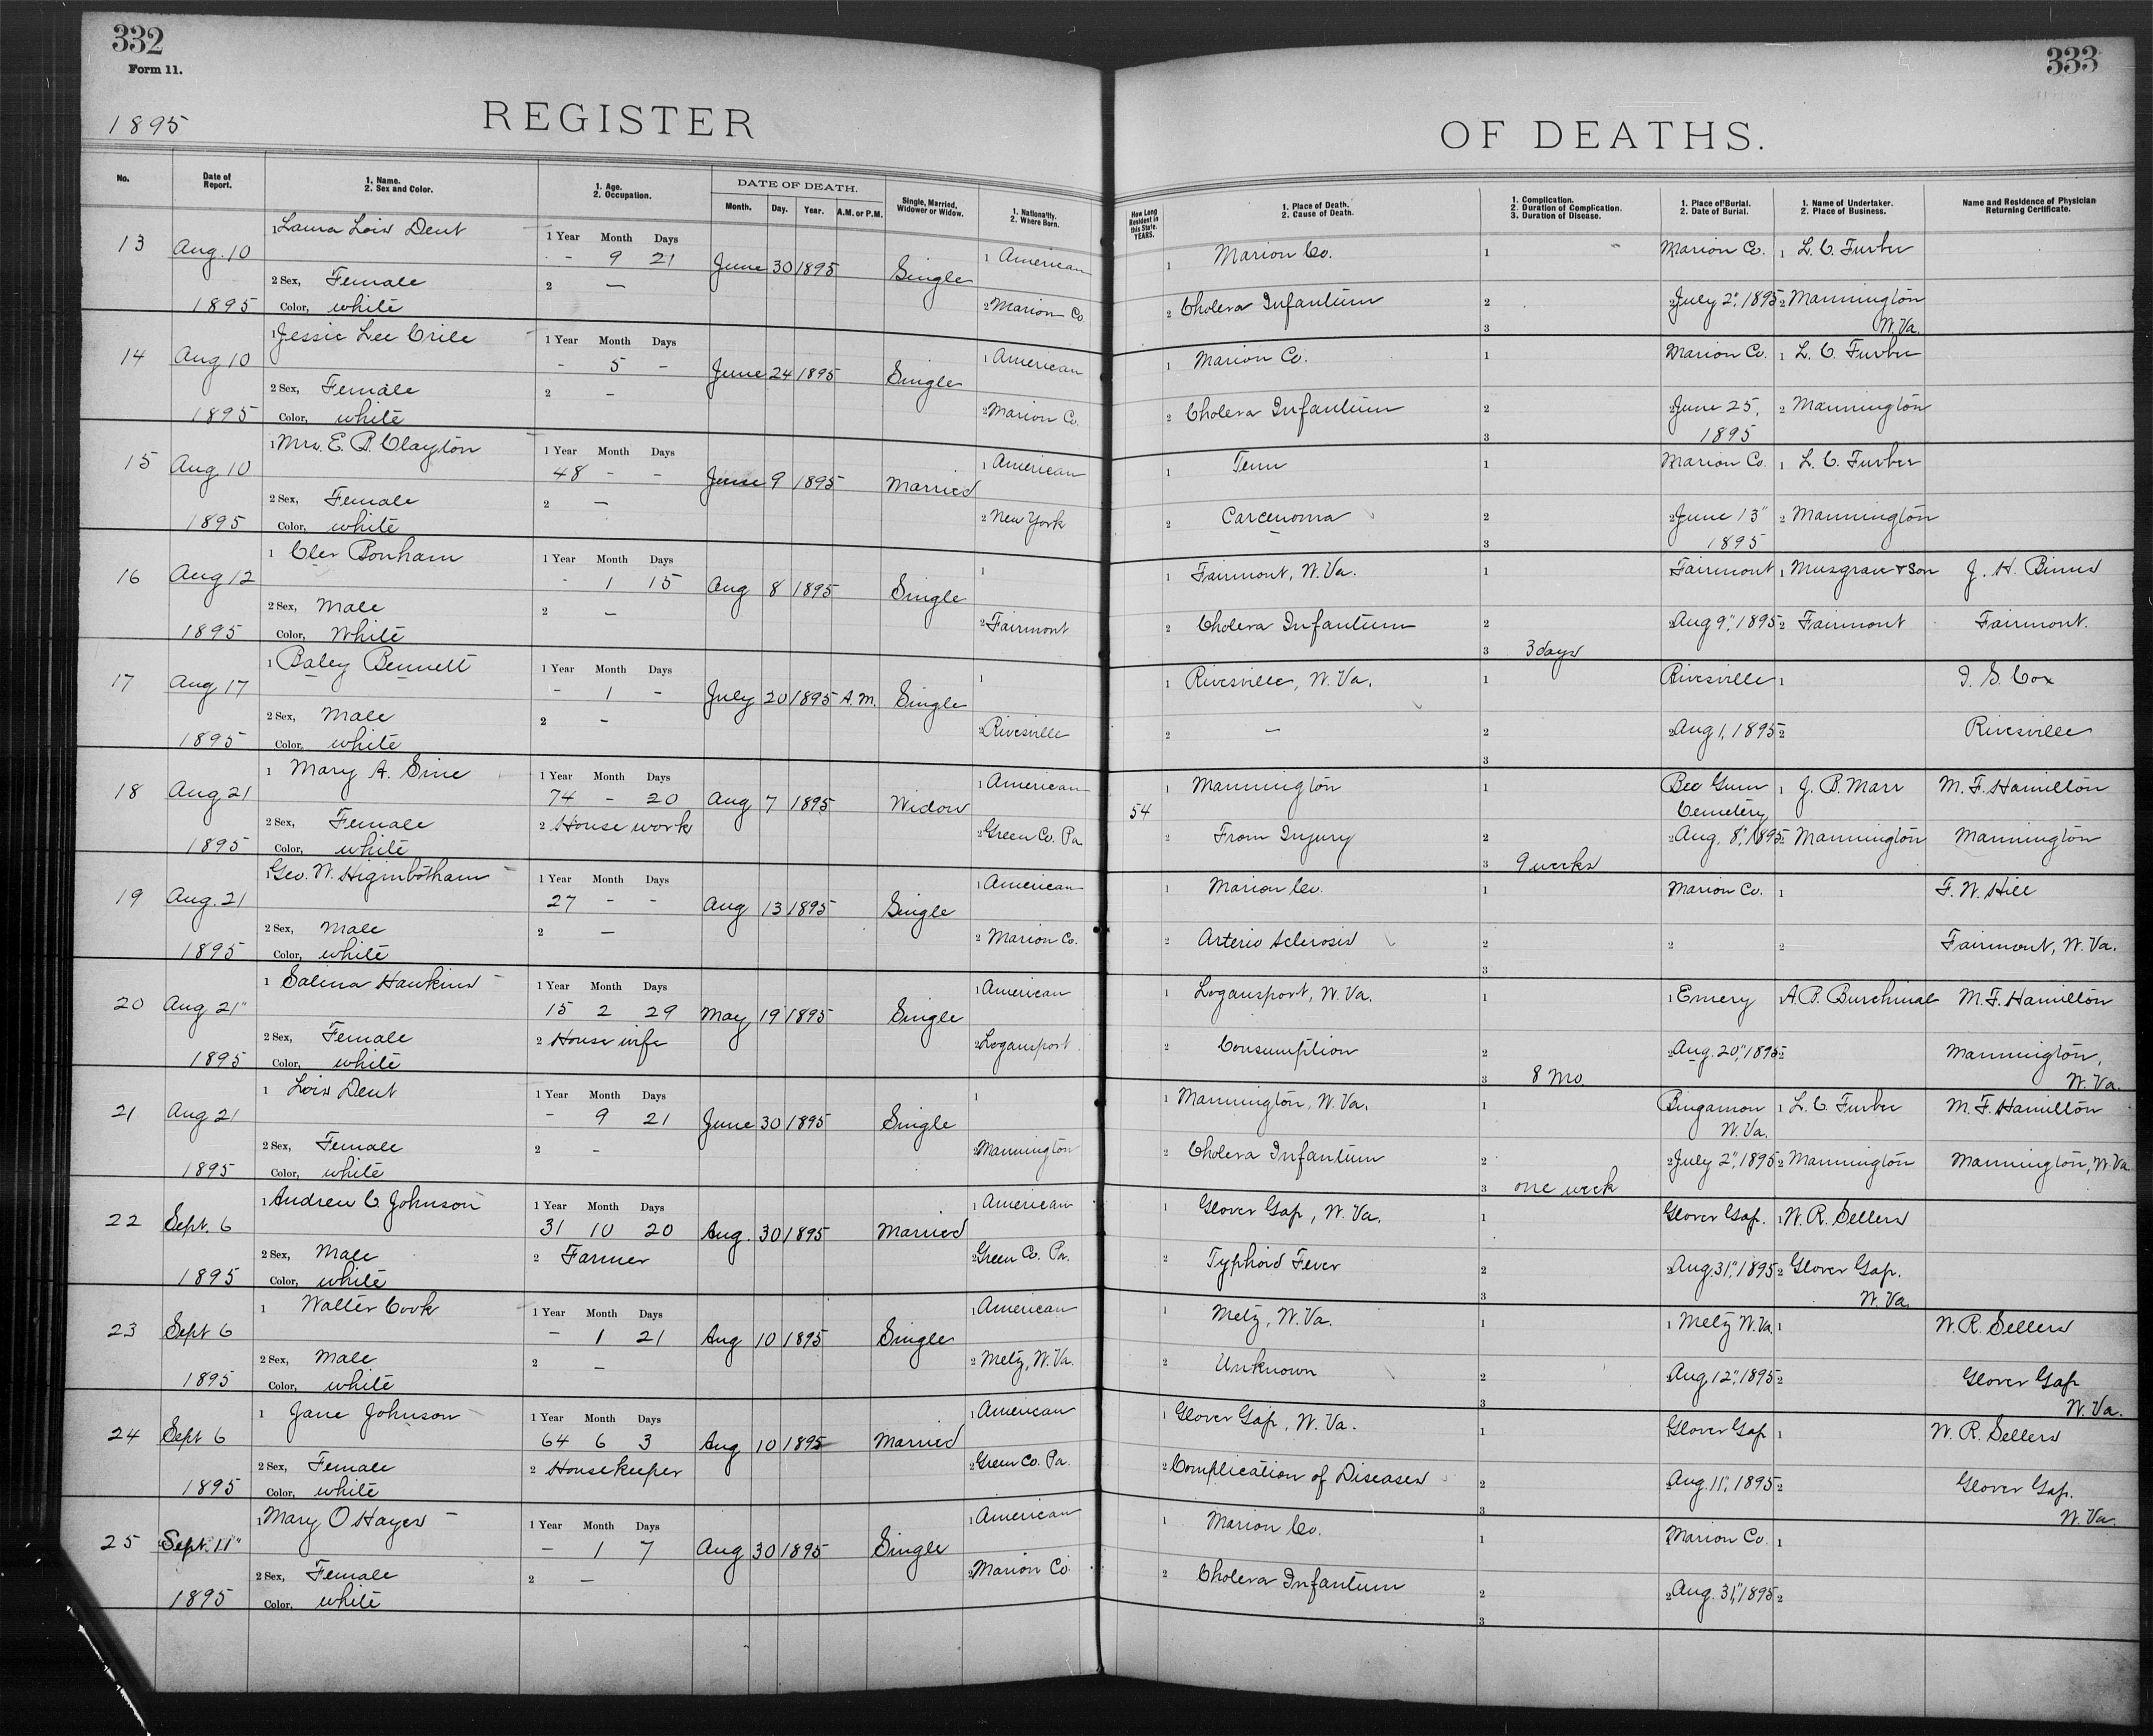 332
Form 11.
1895
REGISTER
No.
Date of Report.
1. Name. 2. Sex and Color.
1. Age. 2. Occupation.
DATE OF DEATH.
Month. Day. Year. A.M. or P.M.
Single, Married, Widower or Widow.
1. Nationality. 2. Where Born.
13 Aug. 10 1 Laura Lois Dent 1 Year Month Days
- 9 21 June 30 1895 Single 1 American
2 Sex, Female 2 —
1895 Color, white 2 Marion Co.
14 Aug 10 1 Jessie Lee Crile 1 Year Month Days
- 5 - June 24 1895 Single 1 American
2 Sex, Female 2 —
1895 Color, white 2 Marion Co.
15 Aug 10 1 Mrs. E. B. Clayton 1 Year Month Days
48 - - June 9 1895 Married 1 American
2 Sex, Female 2 —
1895 Color, white 2 New York
16 Aug 12 1 Cler Bonham 1 Year Month Days
- 1 15 Aug 8 1895 Single 1
2 Sex, Male 2 —
1895 Color, White 2 Fairmont
17 Aug 17 1 Baley Bennett 1 Year Month Days
- 1 - July 20 1895 A.M. Single 1
2 Sex, Male 2 -
1895 Color, white 2 Rivesville
18 Aug 21 1 Mary A. Sine 1 Year Month Days
74 - 20 Aug 7 1895 Widow 1 American
2 Sex, Female 2 House work
1895 Color, white 2 Green Co. Pa
19 Aug. 21 1 Geo. W. Higinbotham 1 Year Month Days
27 - - Aug 13 1895 Single 1 American
2 Sex, Male 2 —
1895 Color, white 2 Marion Co.
20 Aug 21" 1 Salina Hawkins 1 Year Month Days
15 2 29 May 19 1895 Single 1 American
2 Sex, Female 2 House wife
1895 Color, white 2 Logansport
21 Aug 21 1 Lois Dent 1 Year Month Days
- 9 21 June 30 1895 Single 1
2 Sex, Female 2 -
1895 Color, white 2 Mannington
22 Sept. 6 1 Andrew C Johnson 1 Year Month Days
31 10 20 Aug. 30 1895 Married 1 American
2 Sex, Male 2 Farmer
1895 Color, white 2 Green Co. Pa.
23 Sept 6 1 Walter Cook 1 Year Month Days
- 1 21 Aug 10 1895 Single 1 American
2 Sex, Male 2 —
1895 Color, white 2 Metz, W. Va.
24 Sept 6 1 Jane Johnson 1 Year Month Days
64 6 3 Aug 10 1895 Married 1 American
2 Sex, Female 2 Housekeeper
1895 Color, white 2 Green Co. Pa.
25 Sept. 11" 1 Mary O Hayes 1 Year Month Days
- 1 7 Aug 30 1895 Single 1 American
2 Sex, Female 2 —
1895 Color, white 2 Marion Co.
333
OF DEATHS.
How Long Resident in this State. YEARS.
1. Place of Death. 2. Cause of Death.
1. Complication. 2. Duration of Complication. 3. Duration of Disease.
1. Place of Burial. 2. Date of Burial.
1. Name of Undertaker. 2. Place of Business.
Name and Residence of Physician Returning Certificate.
1 Marion Co. 1 Marion Co. 1 L. C. Furber
2 Cholera Infantum 2 2 July 2", 1895 2 Mannington
3 W. Va.
1 Marion Co. 1 Marion Co. 1 L. C. Furber
2 Cholera Infantum 2 2 June 25, 2 Mannington
3 1895
1 Tenn 1 Marion Co. 1 L. C. Furber
2 Carcenoma 2 2 June 13" 2 Mannington
3 1895
1 Fairmont, W. Va. 1 Fairmont 1 Musgrave & Son J. H. Binns
2 Cholera Infantum 2 2 Aug 9", 1895 2 Fairmont Fairmont.
3 3 days
1 Rivesville, W. Va. 1 Rivesville 1 I. S. Cox
2 — 2 2 Aug 1, 1895 2 Rivesville
3
54 1 Mannington 1 Bee Gum Cemetery 1 J. B. Marr M. F. Hamilton
2 From Injury 2 2 Aug. 8", 1895 2 Mannington Mannington
3 9 weeks
1 Marion Co. 1 Marion Co. 1 F. W. Hill
2 Arterio Sclerosis 2 2 2 Fairmont, W. Va.
3
1 Logansport, W. Va. 1 1 Emery A. B. Burchinal M. F. Hamilton
2 Consumption 2 2 Aug. 20", 1895 2 Mannington,
3 8 Mo. W. Va.
1 Mannington, W. Va. 1 Bingamon W. Va. 1 L. C. Furber M. F. Hamilton
2 Cholera Infantum 2 2 July 2", 1895 2 Mannington Mannington, W. Va
3 one week
1 Glover Gap, W. Va. 1 Glover Gap. 1 W. R. Sellers
2 Typhoid Fever 2 2 Aug. 31", 1895 2 Glover Gap.
3 W. Va.
1 Metz, W. Va. 1 1 Metz W. Va. 1 W. R. Sellers
2 Unknown 2 Aug. 12", 1895 2 Glover Gap
3 W. Va.
1 Glover Gap, W. Va. 1 Glover Gap 1 W. R. Sellers
2 Complication of Diseases 2 2 Aug. 11", 1895 2 Glover Gap.
3 W. Va.
1 Marion Co. 1 Marion Co. 1
2 Cholera Infantum 2 2 Aug. 31", 1895 2
3